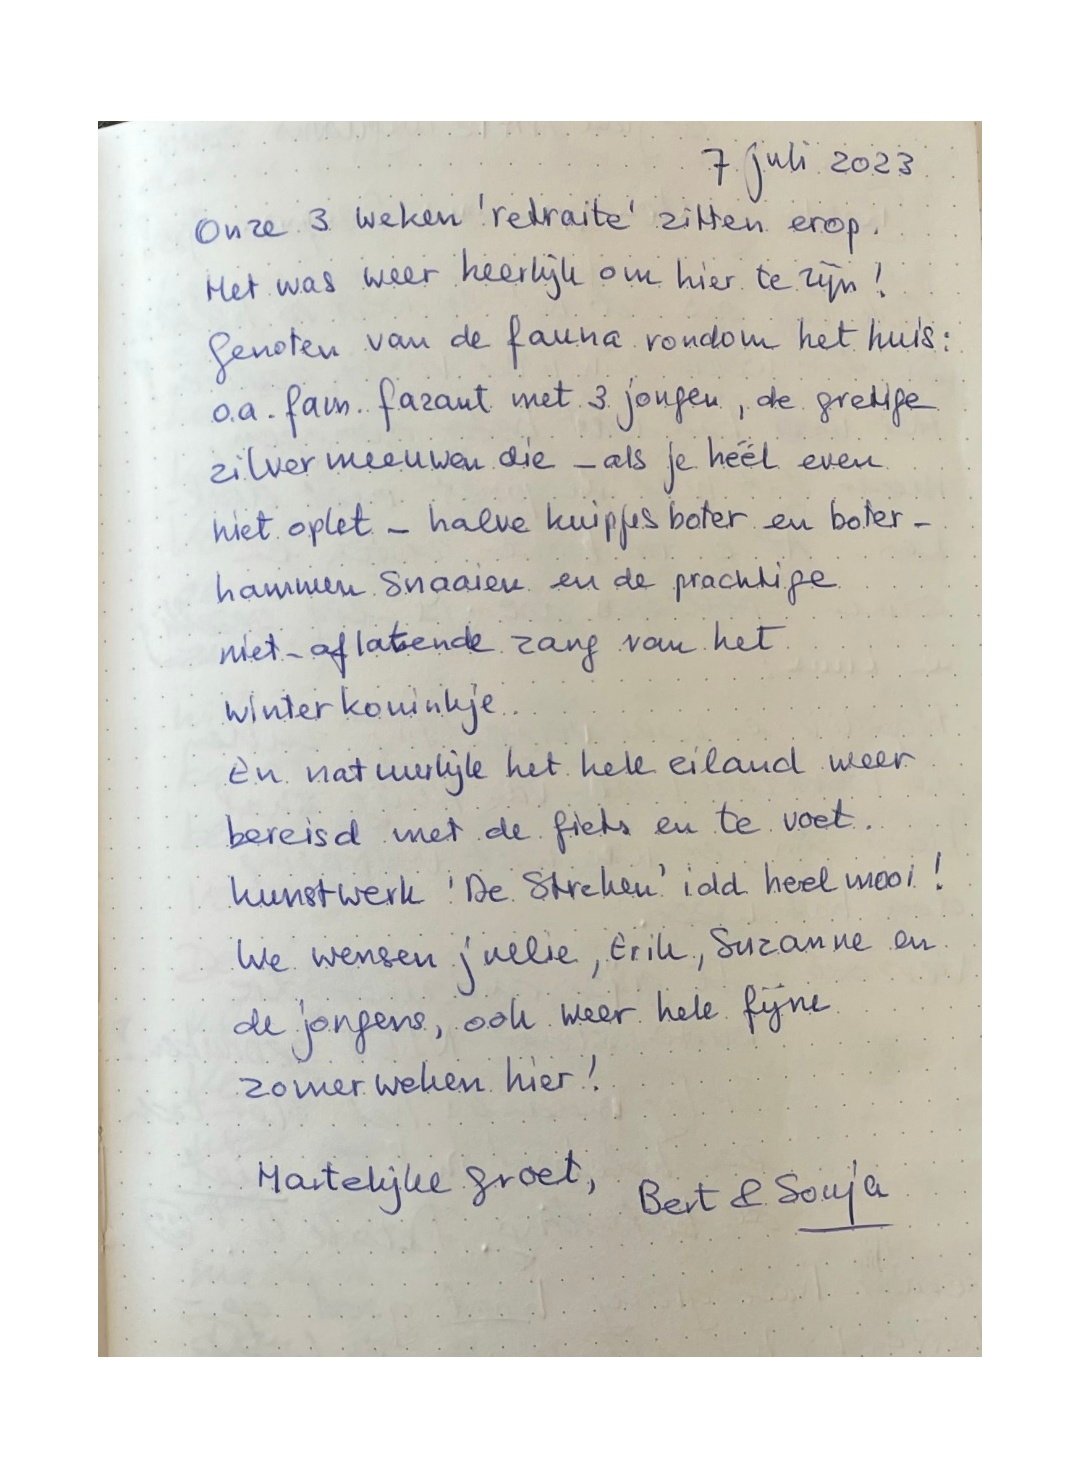 7 juli 2023
Onze 3 weken 'retraite' zitten erop.
Het was weer heerlijk om hier te zijn!
Genoten van de fauna rondom het huis:
o.a. fam. fazant met 3 jongen, de gretige
zilvermeeuwen die - als je héél even
niet oplet - halve kuipjes boter en boter-
hammen snaaien en de prachtige
niet-aflatende zang van het
winterkoninkje.
En natuurlijk het hele eiland weer
bereisd met de fiets en te voet.
Kunstwerk 'De Streken' idd heel mooi!
We wensen jullie, Erik, Suzanne en
de jongens, ook weer hele fijne
zomerweken hier!
Hartelijke groet,
Bert & Sonja